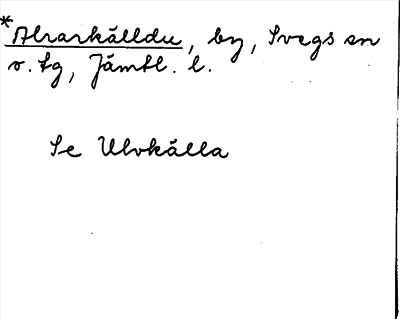 *Alvarkälldu, by, Svegs sn
o. tg, Jämtl. l.
Se Ulvkälla